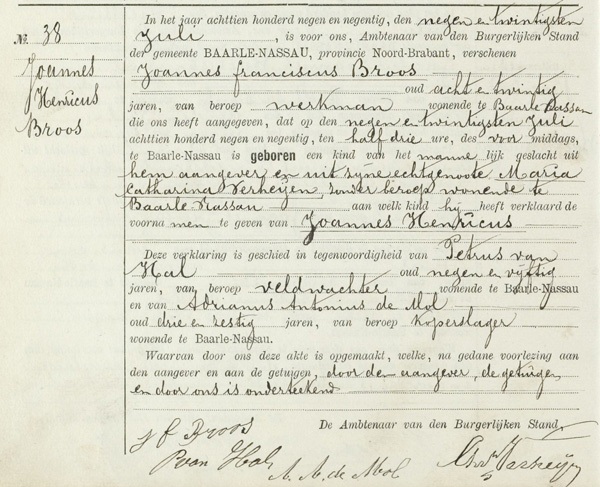 № 38
Joannes
Henricus
Broos
In het jaar achttien honderd negen en negentig, den negen en twintigsten
Juli, is voor ons, Ambtenaar van den Burgerlijken Stand
der gemeente BAARLE-NASSAU, provincie Noord-Brabant, verschenen
Joannes franciscus Broos
oud acht en twintig
jaren, van beroep werkman wonende te Baarle Nassau
die ons heeft aangegeven, dat op den negen en twintigsten Juli
achttien honderd negen en negentig, ten half drie ure, des voor middags,
te Baarle-Nassau is geboren een kind van het manne lijk geslacht uit
hem aangever en uit zyne echtgenoote Maria
Catharina Verheijen, zonder beroep wonende te
Baarle Nassau aan welk kind hij heeft verklaard de
voorna men te geven van Joannes Henricus
Deze verklaring is geschied in tegenwoordigheid van Petrus van
Hal oud negen en vijftig
jaren, van beroep veldwachter wonende te Baarle-Nassau
en van Adrianus Antonius de Mol
oud drie en zestig jaren, van beroep koperslager
wonende te Baarle-Nassau.
Waarvan door ons deze akte is opgemaakt, welke, na gedane voorlezing aan
den aangever en aan de getuigen, door den aangever, de getuigen
en door ons is onderteekend
De Ambtenaar van den Burgerlijken Stand,
J f Broos
P van Hal
A. A. de Mol